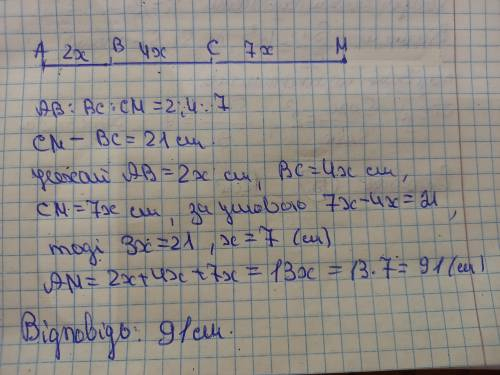 A 2x B 4x C 7x M
AB : BC : CM = 2 : 4 : 7
CM − BC = 21 см.
нехай AB = 2x см, BC = 4x см,
CM = 7x см, за умовою 7x − 4x = 21,
тоді 3x = 21, x = 7 (см)
AM = 2x + 4x + 7x = 13x = 13 · 7 = 91 (см)
Відповідь: 91 см.